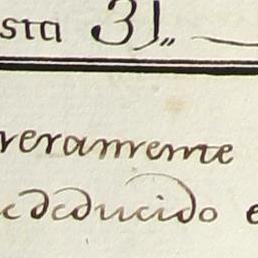 sta 31,,
veramente
e deducido e